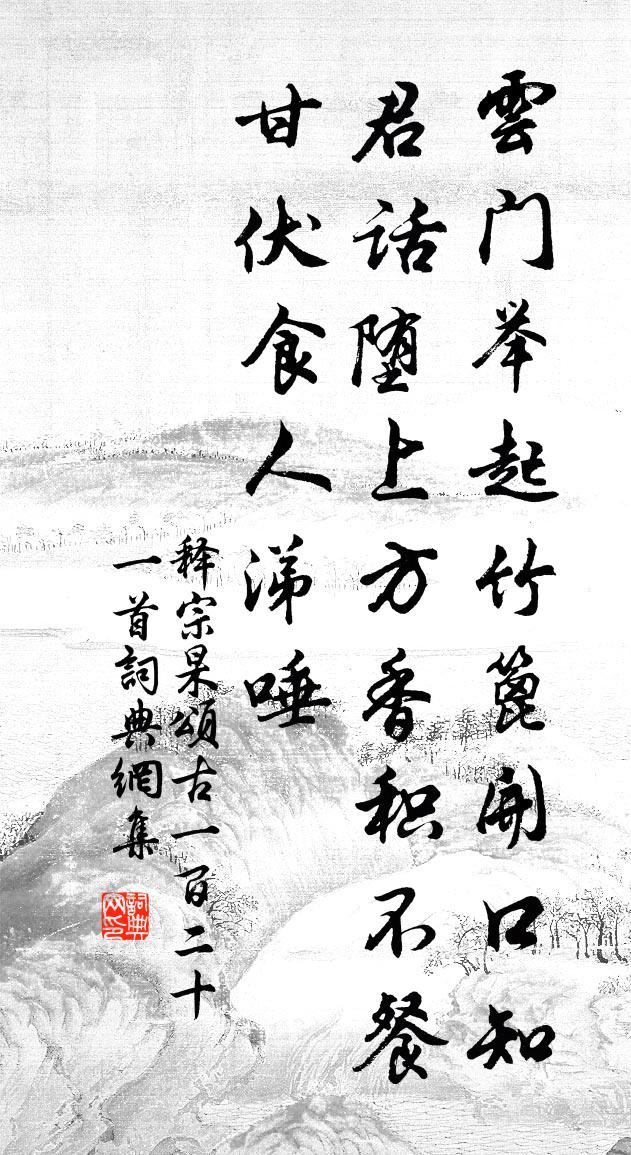 雲门举起竹篦開口知
君话堕上方香积不餐
甘伏食人涕唾
释宗杲頌古一百二十
一首詞典網集
詞典
网印